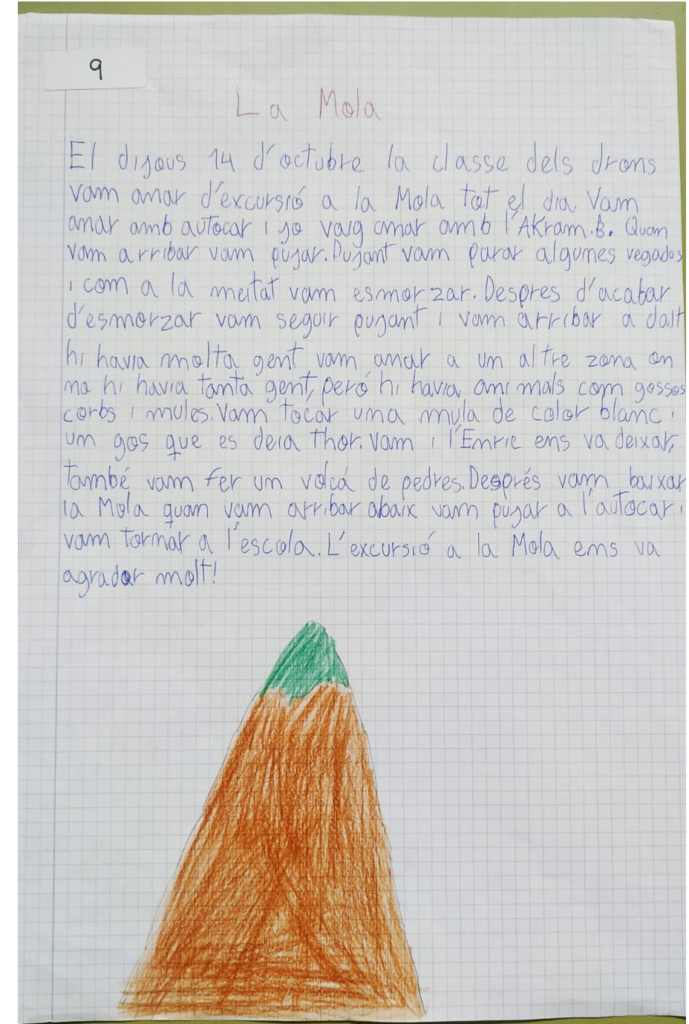 9
La Mola
El dijous 14 d'octubre la classe dels drons
vam anar d'excursió a la Mola tot el dia. Vam
anar amb autocar i jo vaig anar amb l'AKram.B. Quan
vam arribar vam pujar. Pujant vam parar algunes vegades
i com a la meitat vam esmorzar. Despres d'acabar
d'esmorzar vam seguir pujant i vam arribar a dalt
hi havia molta gent vam anar a un altre zona on
no hi havia tanta gent, peró hi havia animals com gossos
corbs i mules. Vam tocar una mula de color blanc i
un gos que es deia Thor. Vam i l'Enric ens va deixar,
també vam fer un volcá de pedres. Després vam baixar
la Mola quan vam arribar abaix vam pujar a l'autocar i
vam tornar a l'escola. L'excursió a la Mola ens va
agradar molt!